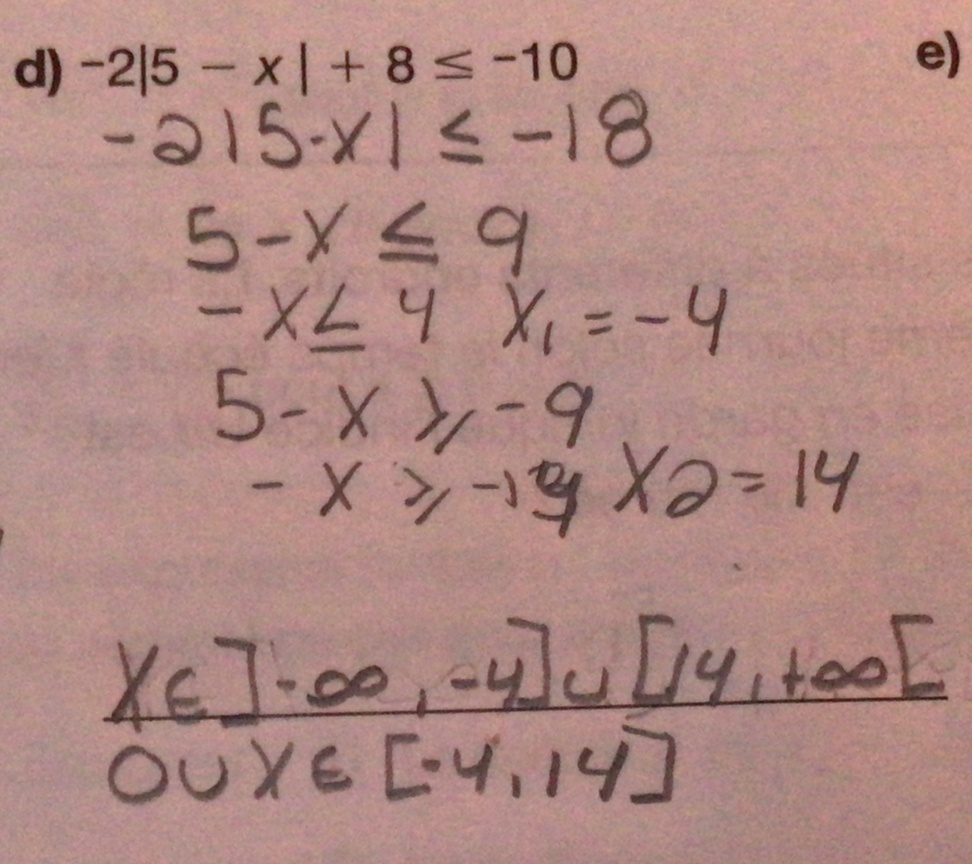 d) -2|5 - x| + 8 ≤ -10
e)
-2|5-x| ≤ -18
5-x ≤ 9
-x ≤ 4 x₁ = -4
5-x ≥ -9
-x ≥ -14 x2 = 14
x∈]-∞, -4]∪[14, +∞[
OU x∈[-4, 14]